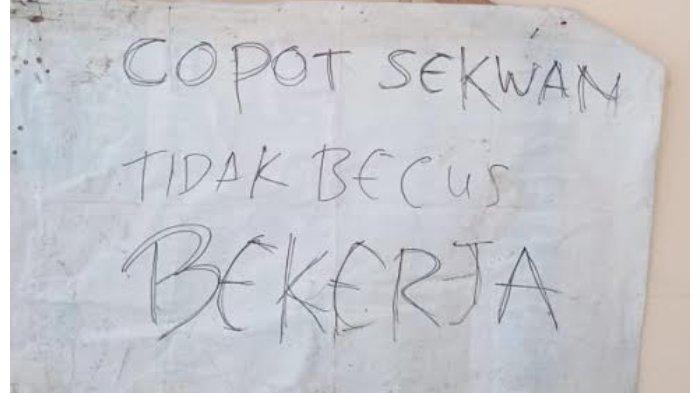 COPOT SEKWAN
TIDAK BECUS
BEKERJA